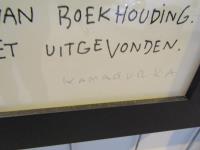 VAN BOEKHOUDING.
ET UITGEVONDEN.
KAMAGURKA